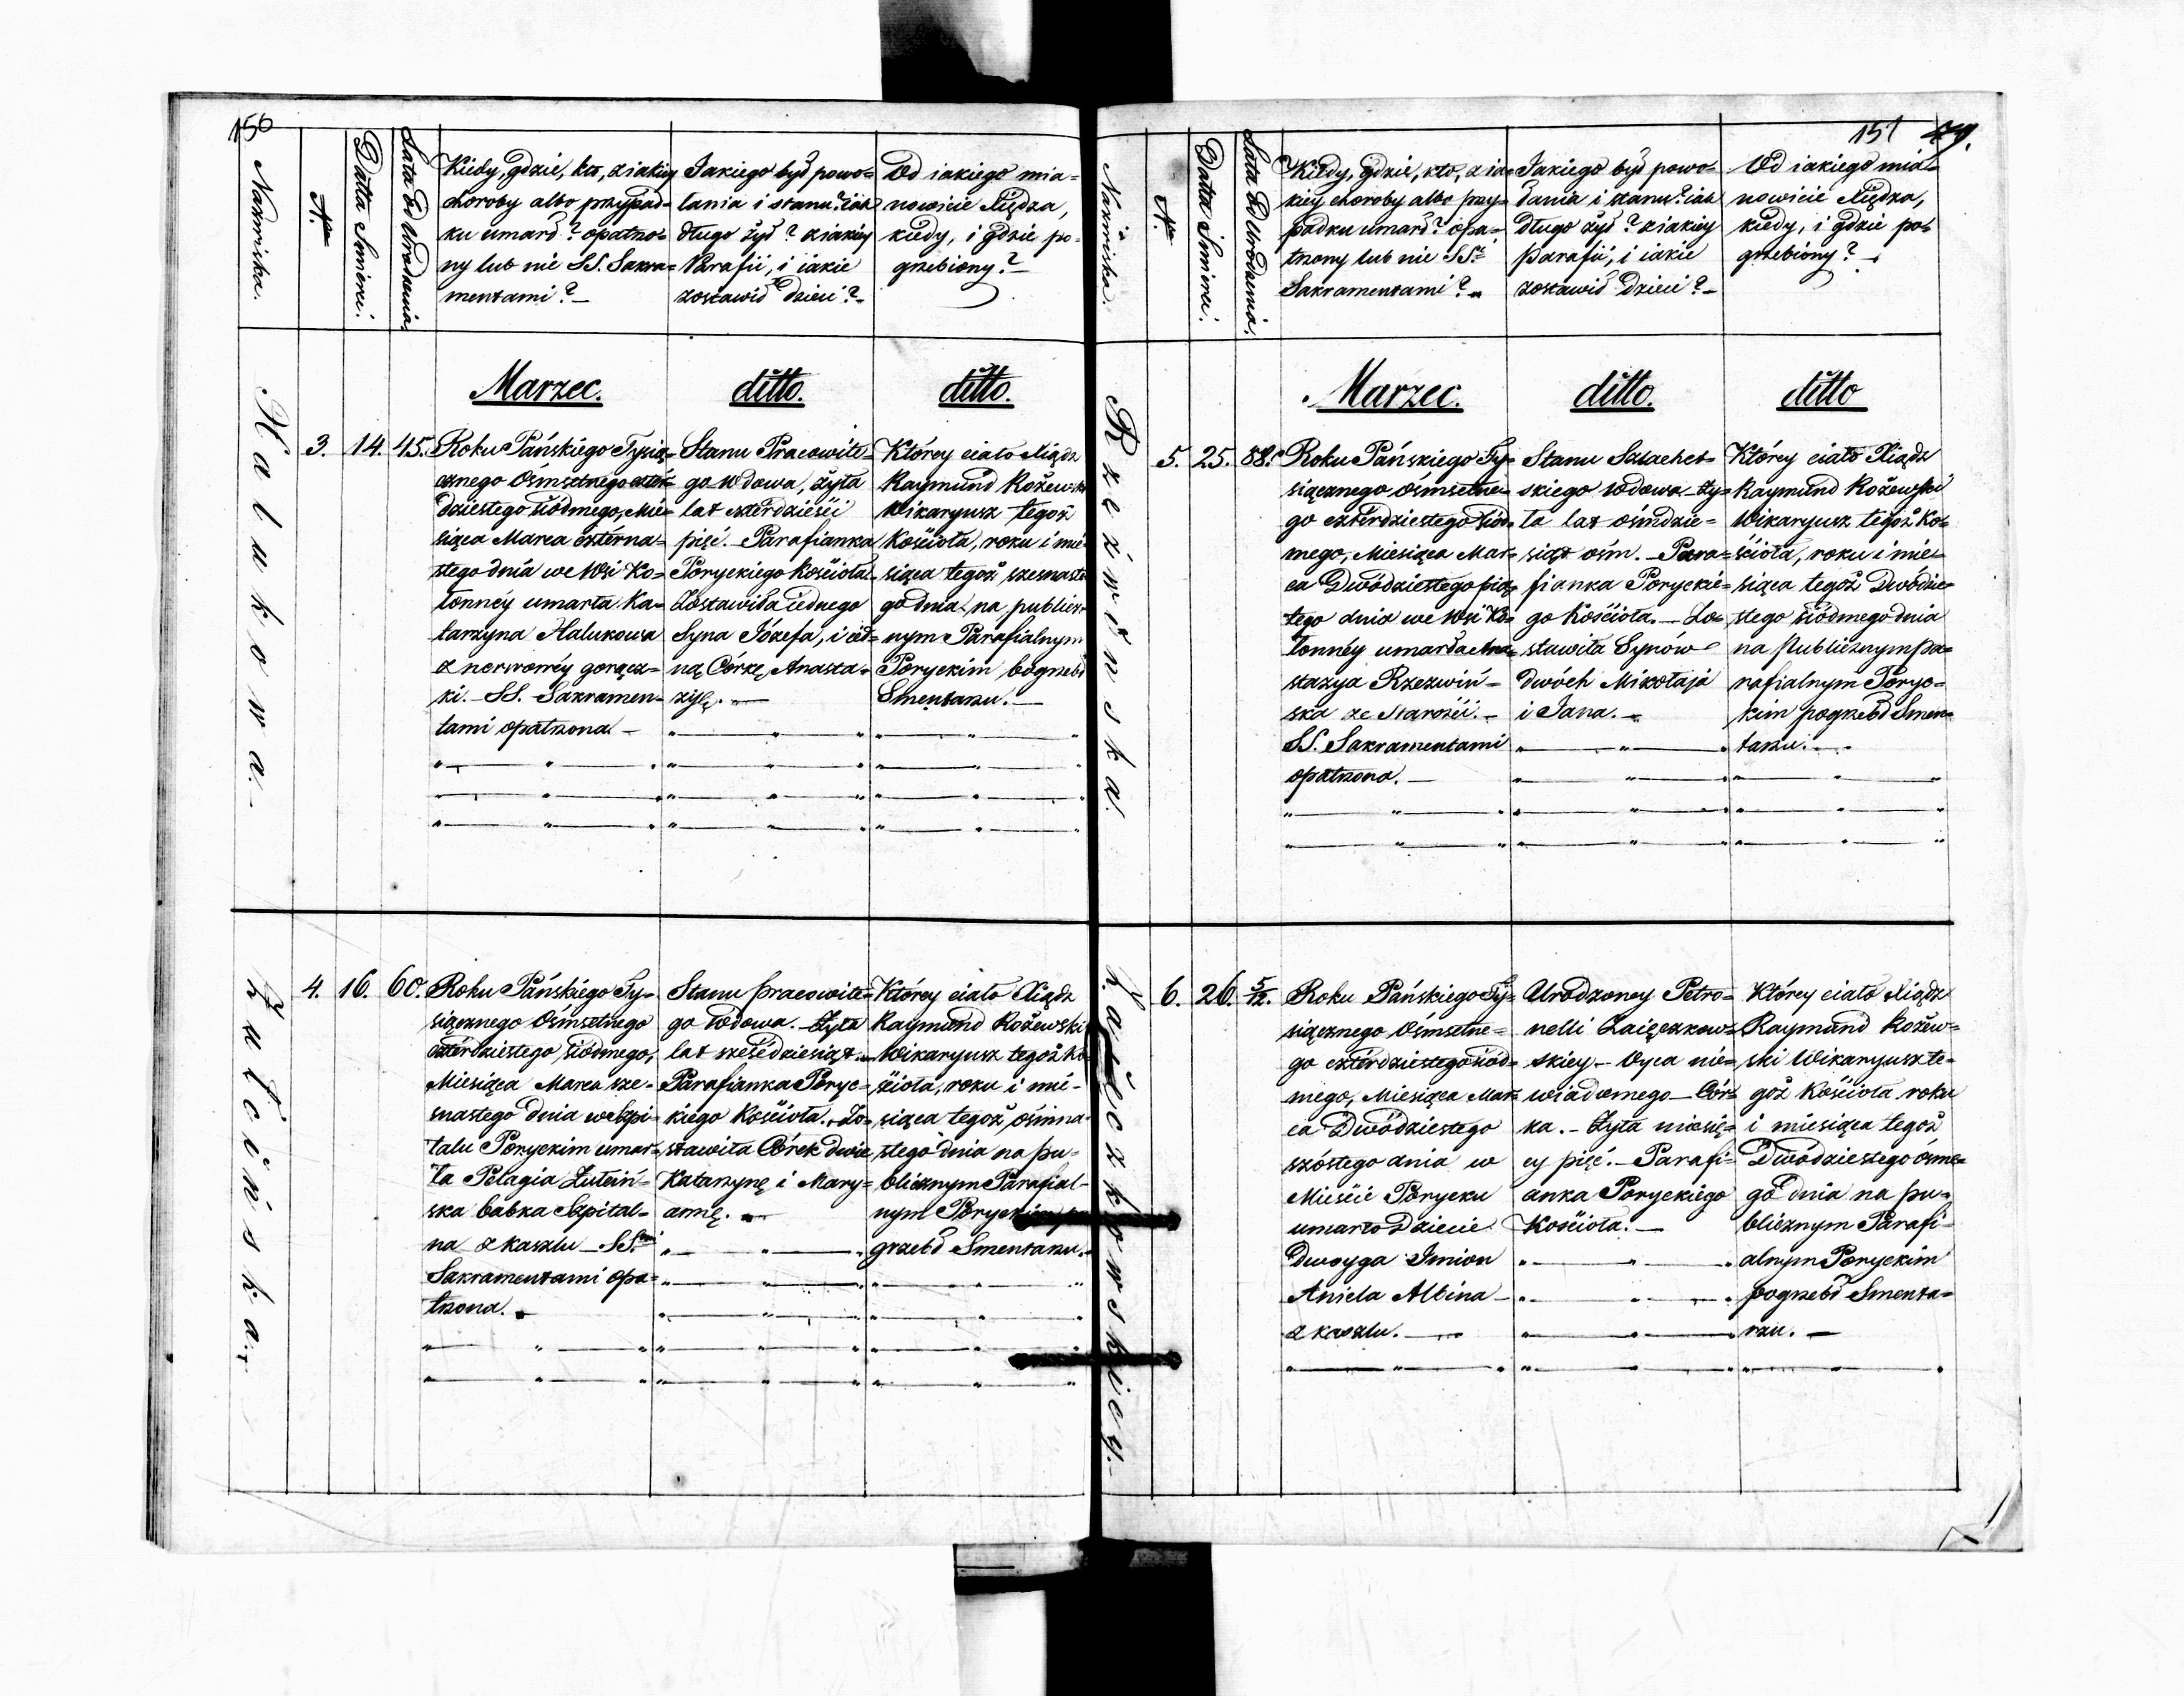 156
Nazwiska.
N.ro
Datta Śmierci.
Lata Od Urodzenia.
Kiedy, gdzie, kto, z iakiey
choroby albo przypad=
ku umarł? opatrzo=
ny lub nie SS. Sakra=
mentami? —
Jakiego był powo=
łania i stanu? iak
długo żył? z iakiey
Parafii, i iakie
zostawił dzieci? —
Od iakiego mia=
nowicie Xiędza,
kiedy, i gdzie po=
grzebiony? —
Marzec.
ditto.
ditto.
Halukowa.
3.
14.
45.
Roku Pańskiego Tysią=
cznego Ośmsetnego czter=
dziestego siódmego, Mie=
siąca Marca czterna=
stego dnia we Wsi Ko=
lonney umarła Ka=
tarzyna Halukowa
z nerwowey gorącz=
ki. — SS. Sakramen=
tami opatrzona. —
Stanu Pracowite=
go wdowa, żyła
lat czterdzieści
pięć. — Parafianka
Poryckiego Kościoła.
Zostawiła iednego
Syna Józefa, i ied=
ną Córkę, Anasta=
zyię. —
Którey ciało Xiądz
Raymund Rożewski
Wikaryusz tegoż
Kościoła, roku i mie=
siąca tegoż szesnaste
go dnia, na publicz=
nym Parafialnym
Poryckim pogrzebł
Smentarzu. —
Łutcińska.
4.
16.
60.
Roku Pańskiego Ty=
siącznego Ośmsetnego
czterdziestego siódmego,
Miesiąca Marca sze=
snastego dnia we Szpi=
talu Poryckim umar=
ła Pelagia Łutciń=
ska babka Szpital=
na z kaszlu — SS.mi
Sakramentami opa=
trzona.
Stanu pracowite=
go wdowa. — Żyła
lat sześćdziesiąt. —
Parafianka Poryc=
kiego Kościoła. — Zo=
stawiła Córek dwie
Katarzynę i Mary=
annę. —
Którey ciało Xiądz
Raymund Rożewski
Wikaryusz tegoż Ko
ścioła, roku i mie=
siąca tegoż ośmna=
stego dnia na pu=
blicznym Parafial=
nym Poryckim po
grzebł Smentarzu.
151
79.
Nazwiska.
N.ro
Datta Śmierci.
Lata Od Urodzenia.
Kiedy, gdzie, kto, z ia=
kiey choroby albo przy=
padku umarł? opa=
trzony lub nie SS.
Sakramentami? —
Jakiego był powo=
łania i stanu? iak
długo żył? z iakiey
parafii, i iakie
zostawił dzieci? —
Od iakiego mia=
nowicie Xiędza,
kiedy, i gdzie po=
grzebiony? —
Marzec.
ditto.
ditto
Rzezwińska.
5.
25.
88.
Roku Pańskiego Ty=
siącznego ośmsetne=
go czterdziestego siód=
mego, Miesiąca Mar=
ca Dwódziestego pią=
tego dnia we Wsi Ko=
lonney umarła Ana=
stazya Rzezwiń=
ska ze starości. —
SS. Sakramentami
opatrzona. —
Stanu Szlachet=
skiego wdowa — ży=
ła lat ośmdzie=
siąt ośm. — Para=
fianka Poryckie=
go Kościoła. — Zo=
stawiła Synów
dwóch Mikołaja
i Jana. —
Którey ciało Xiądz
Raymund Rożewski
Wikaryusz tegoż Ko=
ścioła, roku i mie=
siąca tegoż Dwódzie=
stego siódmego dnia
na Publicznym pa=
rafialnym Poryc=
kim pogrzebł Smen=
tarzu. —
Zaięczkowskiey. —
6.
26.
5/12.
Roku Pańskiego Ty=
siącznego Ośmsetne=
go czterdziestego siód=
mego, Miesiąca Mar=
ca Dwódziestego
szóstego dnia w
Mieście Porycku
umarło Dziecie
Dwoyga Imion
Aniela Albina —
z kaszlu. —
Urodzoney Petro=
nelli Zaięczkow=
skiey — Oyca nie=
wiadomego — Cór=
ka. — Żyła miesię=
cy pięć. — Parafi=
anka Poryckiego
Kościoła. —
Którey ciało Xiądz
Raymund Rożew=
ski Wikaryusz te=
goż Kościoła roku
i miesiąca tegoż
Dwódziestego ósme=
go dnia na pu=
blicznym Parafi=
alnym Poryckim
pogrzebł Smenta=
rzu. —